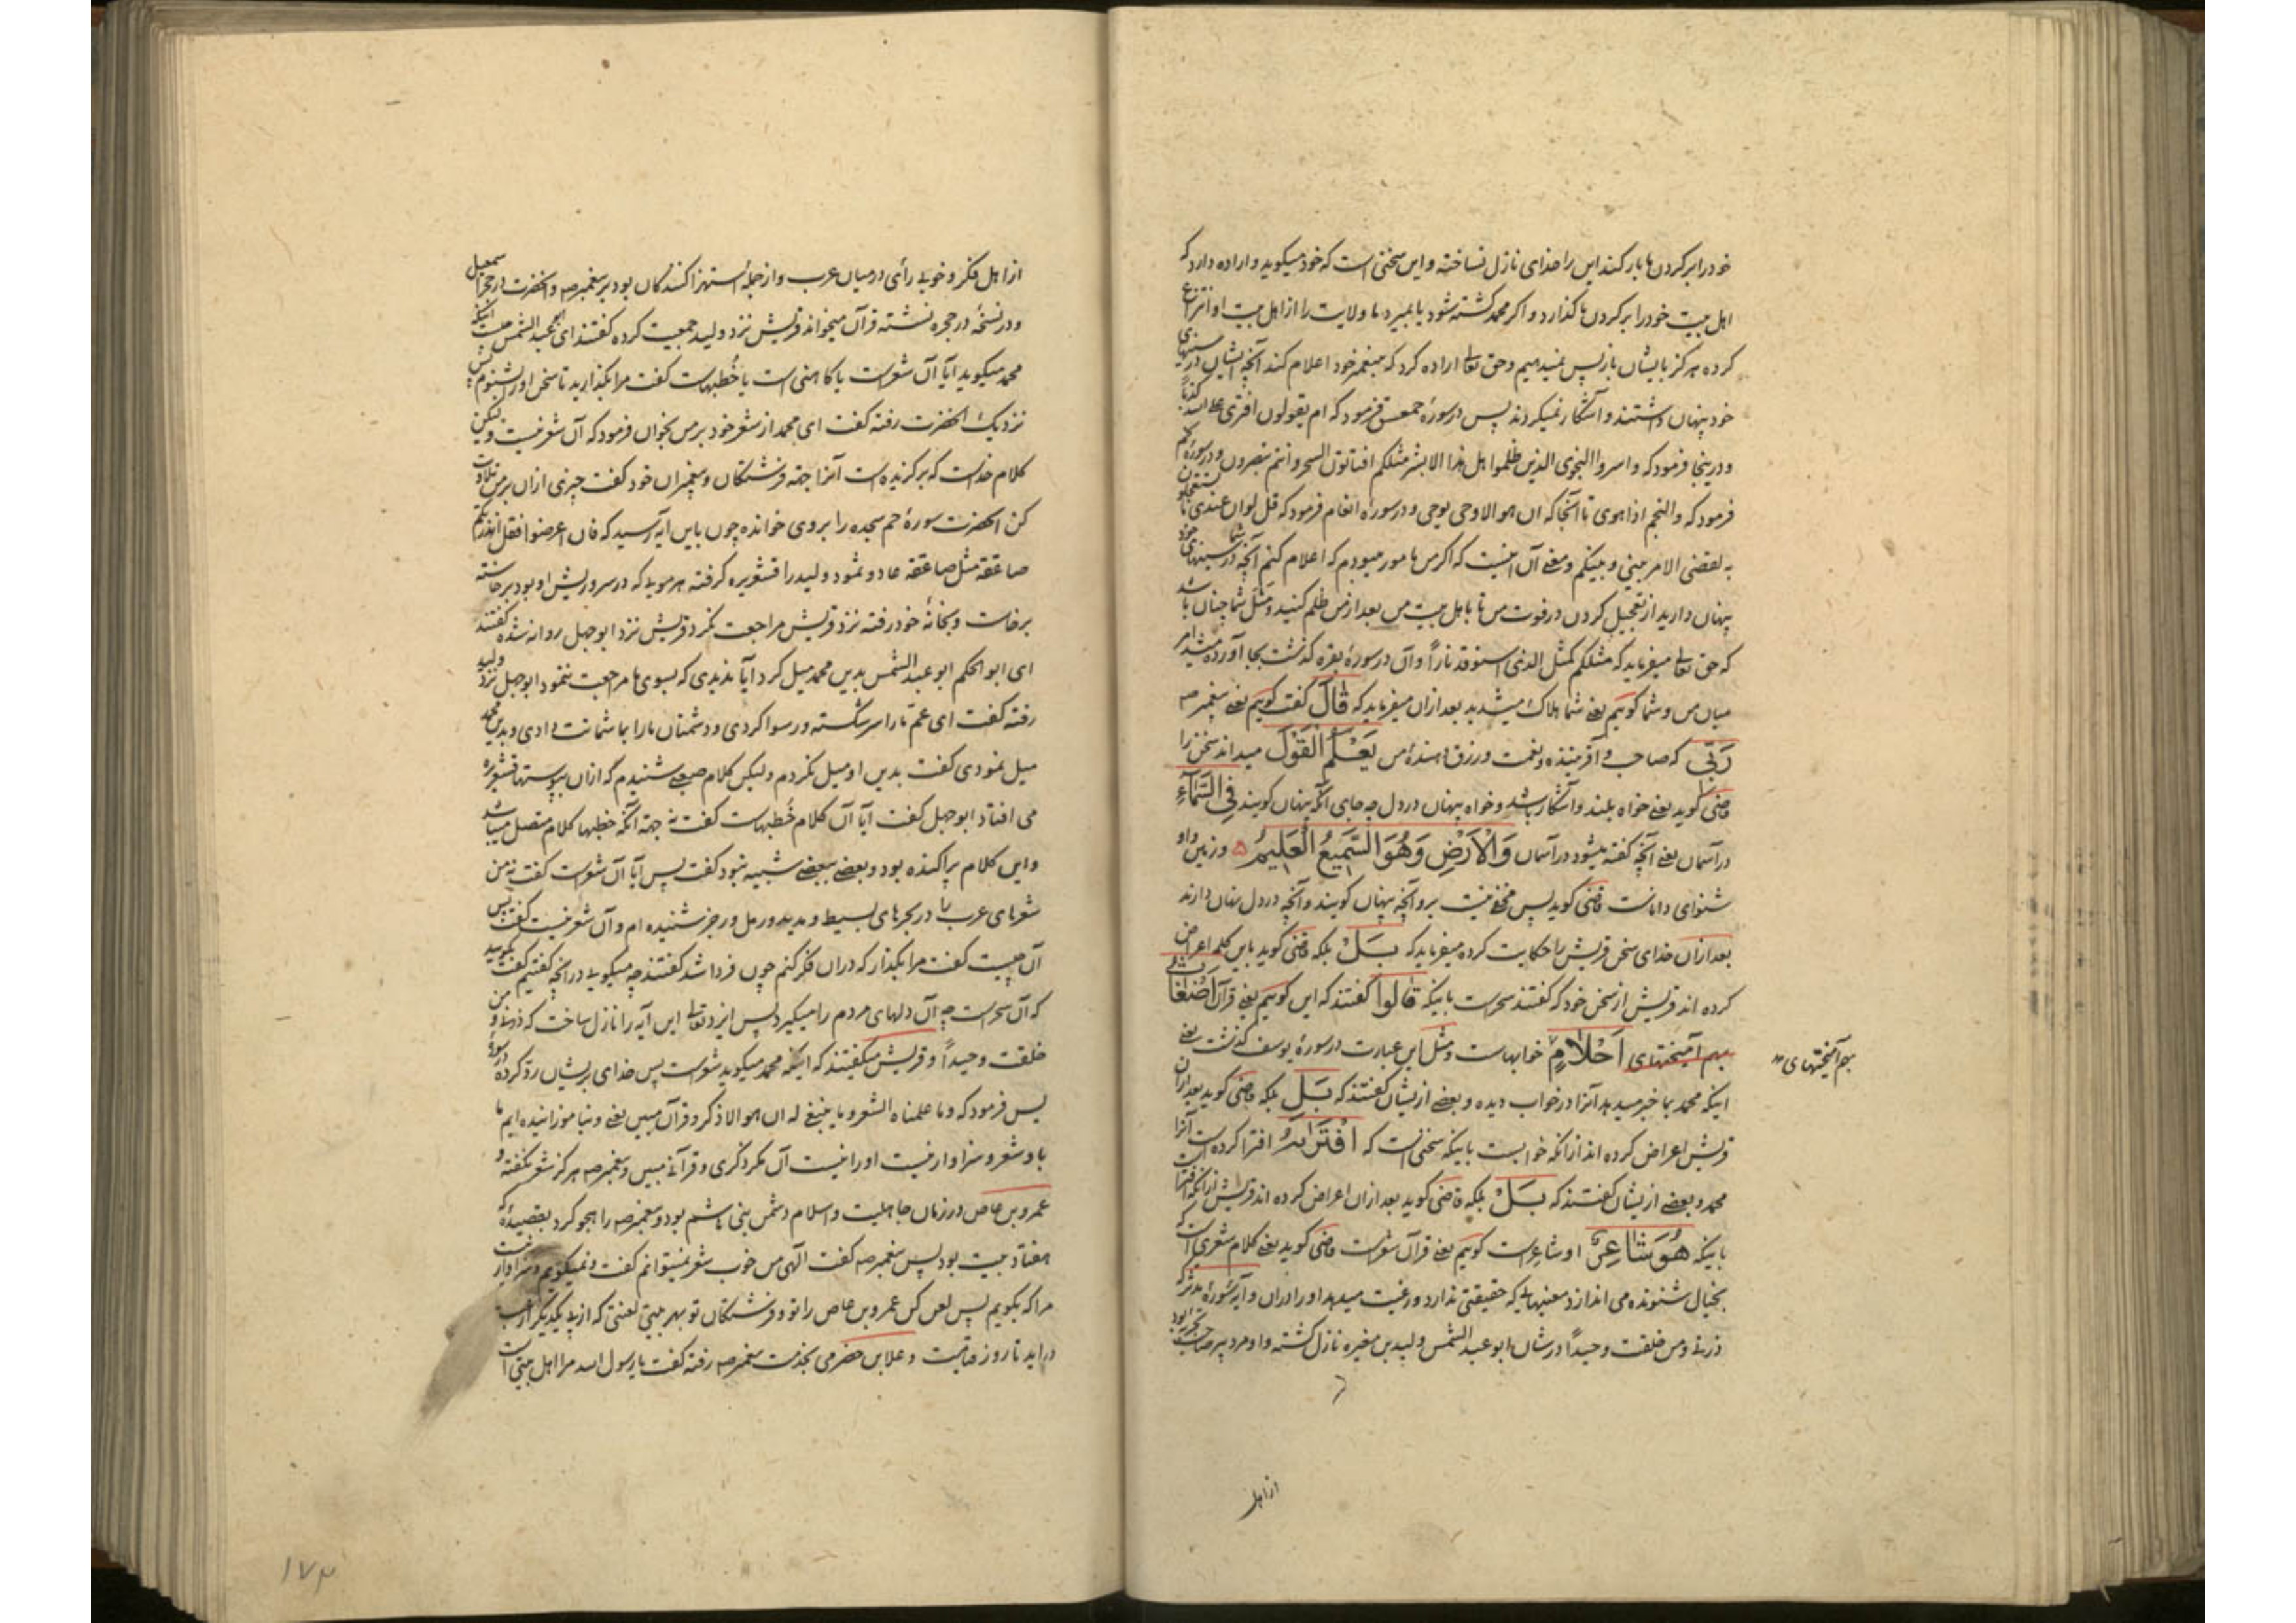 خود را بر کردن ما بار کند این را خدای نازل نساخته و این سخنی است که خود میکوید و اراده دارد که
اهل بیت خود را بر کردن ما کذارد و اکر محمد کشته شود یا بمیرد ما ولایت را از اهل بیت او انتزاع
کرده هرکز بایشان باز پس نمیدهیم و حق تعالی اراده کرد که پیغمبر خود را اعلام کند آنچه ایشان در سینهای
خود پنهان داشتند و آشکار نمیکردند پس در سورهٔ حمعسق فرمود که ام یقولون افتری علی الله کذباً
و در ینجا فرمود که و اسروا النجوی الذین ظلموا هل هذا الا بشر مثلکم افتاتون السحر و انتم تبصرون و در سورهٔ نجم
فرمود که و النجم اذا هوی تا آنجا که ان هو الا وحی یوحی و در سوره انعام فرمود که قل لو ان عندی ما تستعجلون
به لقضی الامر بینی و بینکم و معنی آن اینست که اکر من مامور میبودم که اعلام کنم آنچه شما در سینهای خود
پنهان دارید از تعجیل کردن در فوت من تا با اهل بیت من بعد از من ظلم کنید و مثل شما چنان باشد
که حق تعالی میفرماید که مثلکم کمثل الذی استوقد ناراً و آن در سورهٔ بقره کذشت بجا آورده میشد امر
میان من و شما کوییم یعنی شما هلاک میشدید بعد از ان میفرماید که قَالَ کفت کوییم یعنی پیغمبر صه
رَبّی که صاحب و آفریننده و نعمت و رزق دهندهٔ من یَعْلَمُ الْقَوْلَ میداند سخن را
قاضی کوید یعنی خواه بلند و آشکار باشد و خواه پنهان در دل چه جای آنکه پنهان کویند فِی السَّمَآءِ
در آسمان یعنی آنچه کفته میشود در آسمان وَالْاَرْضِ وَهُوَ السَّمیعُ الْعَلِیمُ ۵ و زمین و او
شنوای داناست قاضی کوید پس مخفی نیست بر و آنچه پنهان کویند و آنچه در دل نهان دارند
بعد از ان خدای سخن قریش را حکایت کرده میفرماید که بَلْ بلکه قاضی کوید باین کلمه اعراض
کرده اند قریش از سخن خود که کفتند سحرست باینکه قَالُوا کفتند که این کوییم یعنی قرآن اَضْغَاثُ
بهم آمیختهای اَحْلَامٍ خوابهاست و مثل این عبارت در سورهٔ یوسف کذشت یعنی
بهم آمیختهای
اینکه محمد بما خبر میدهد آنرا در خواب دیده و بعضی از یشان کفتند که بَلْ بلکه قاضی کوید بعد از ان
قریش اعراض کرده اند از انکه خوابست باینکه سخنی است که افْتَرَاهُ افترا کرده است آنرا
محمد و بعضی از یشان کفتند که بَلْ بلکه قاضی کوید بعد از ان اعراض کرده اند قریش از انکه افتراست
باینکه هُوَ شَاعِرٌ او شاعرست کوییم یعنی قرآن شعرست قاضی کوید یعنی کلام شعری است که
بخیال شنونده می اندازد معنیهایی که حقیقتی ندارد و رغبت میدهد او را در ان و آیهٔ سورهٔ مدثر که
ذرنی و من خلقت وحیداً در شان ابو عبد الشمس ولید بن مغیره نازل کشته و او مرد پیر صاحب تجربه بود
از اهل
از اهل فکر و خوب رأی در میان عرب و از جملهٔ استهزا کنندکان بود بر پیغمبر صه و آنحضرت در حجر اسمعیل
و در نسخهٔ در حجره نشسته قرآن میخواند قریش نزد ولید جمعیت کرده کفتند ای ابو عبد الشمس چیست اینکه
محمد میکوید آیا آن شعرست یا کاهنی است یا خُطبهاست کفت مرا بکذارید تا سخن او را بشنوم پس
نزدیک آنحضرت رفته کفت ای محمد از شعر خود بر من بخوان فرمود که آن شعر نیست و لیکن
کلام خداست که برکزیده است آنرا جهة فرشتکان و پیغمبران خود کفت چیزی از ان بر من تلاوت
کن آنحضرت سورهٔ حم سجده را بر وی خوانده چون باین آیه رسید که فان اعرضوا فقل انذرتکم
صاعقة مثل صاعقة عاد و ثمود ولید را قشعریره کرفته هر مویی که در سر و ریش او بود برخاسته
برخاست و بخانهٔ خود رفته نزد قریش مراجعت نکرد قریش نزد ابو جهل روانه شده کفتند
ای ابو الحکم ابو عبد الشمس بدین محمد میل کرد آیا ندیدی که بسوی ما مراجعت ننمود ابو جهل نزد ولید
رفته کفت ای عم ما را سر شکسته و رسوا کردی و دشمنان ما را بما شماتت دادی و بدین محمد
میل نمودی کفت بدین او میل نکردم ولیکن کلام صعبی شنیدم که از ان پوستها قشعریره
می افتاد ابو جهل کفت آیا آن کلام خُطبهاست کفت نه جهة آنکه خطبها کلام متصل میباشد
و این کلام پراکنده بود و بعضی ببعضی شبیه نبود کفت پس آیا آن شعرست کفت نه من
شعرهای عرب را در بحرهای بسیط و مدید و رمل و رجز شنیده ام و آن شعر نیست کفت پس
آن چیست کفت مرا بکذار که در ان فکر کنم چون فردا شد کفتند چه میکویی در آنچه کفتیم کفت بکویید
که آن سحرست چه آن دلهای مردم را میکیرد پس ایزد تعالی این آیه را نازل ساخت که ذرنی و من
خلقت وحیداً و قریش میکفتند که اینکه محمد میکوید شعرست پس خدای بریشان رد کرده در سورهٔ
یس فرمود که و ما علمناه الشعر و ما ینبغی له ان هو الا ذکر و قرآن مبین یعنی و نیاموزانیده ایم ما
باو شعر و سزاوار نیست او را نیست آن مکر ذکری و قرآنی مبین و پیغمبر صه هرکز شعر نکفته و
عمرو بن عاص در زمان جاهلیت و اسلام دشمن بنی هاشم بود و پیغمبر صه را هجو کرد بقصیدهٔ که
هفتاد بیت بود پس پیغمبر صه کفت الهی من خوب شعر نمیتوانم کفت و نمیکویم و سزاوار نیست
مرا که بکویم پس لعن کن عمرو بن عاص را تو و فرشتکان تو بهر بیتی لعنتی که از پی یکدیکر
در آید تا روز قیامت و علا بن حضرمی بخدمت پیغمبر صه رفته کفت یا رسول الله مرا اهل بیتی است
۱۷۴